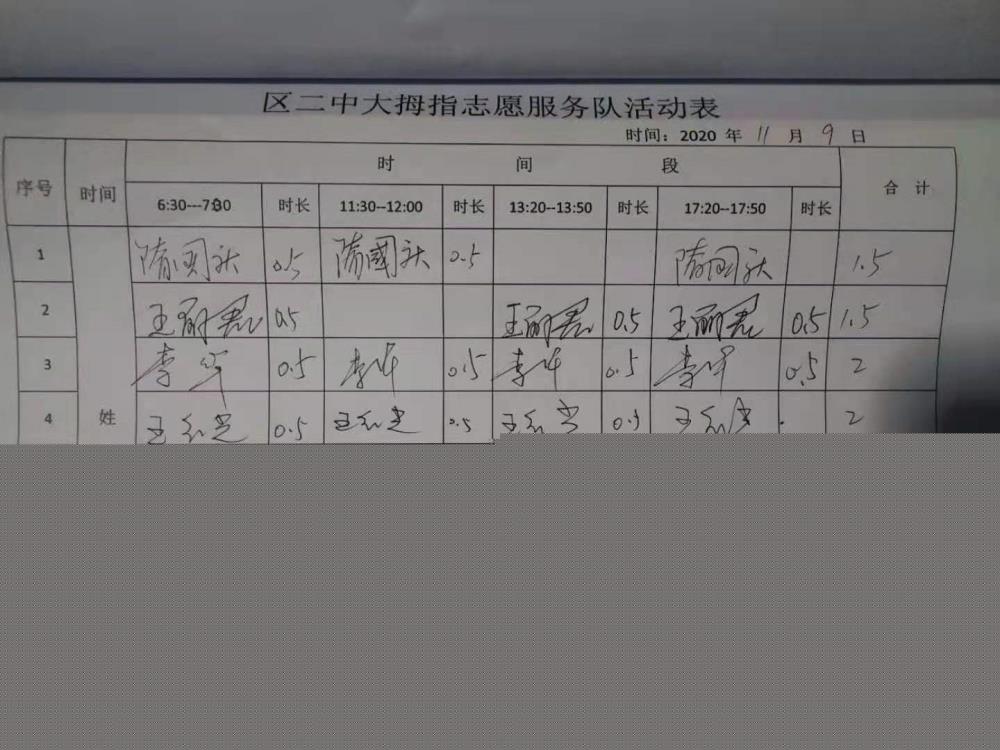 区二中大拇指志愿服务队活动表
时间：2020 年 11 月 9 日
序号 时间 时 间 段 合 计
6:30---7:30 时长 11:30--12:00 时长 13:20--13:50 时长 17:20--17:50 时长
1 隋国 0.5 隋國 0.5 隋国 1.5
2 王丽君 0.5 王丽君 0.5 王丽君 0.5 1.5
3 李华 0.5 李华 0.5 李华 0.5 李华 0.5 2
4 姓 王红 0.5 王红 0.5 王红 0.5 王红 2